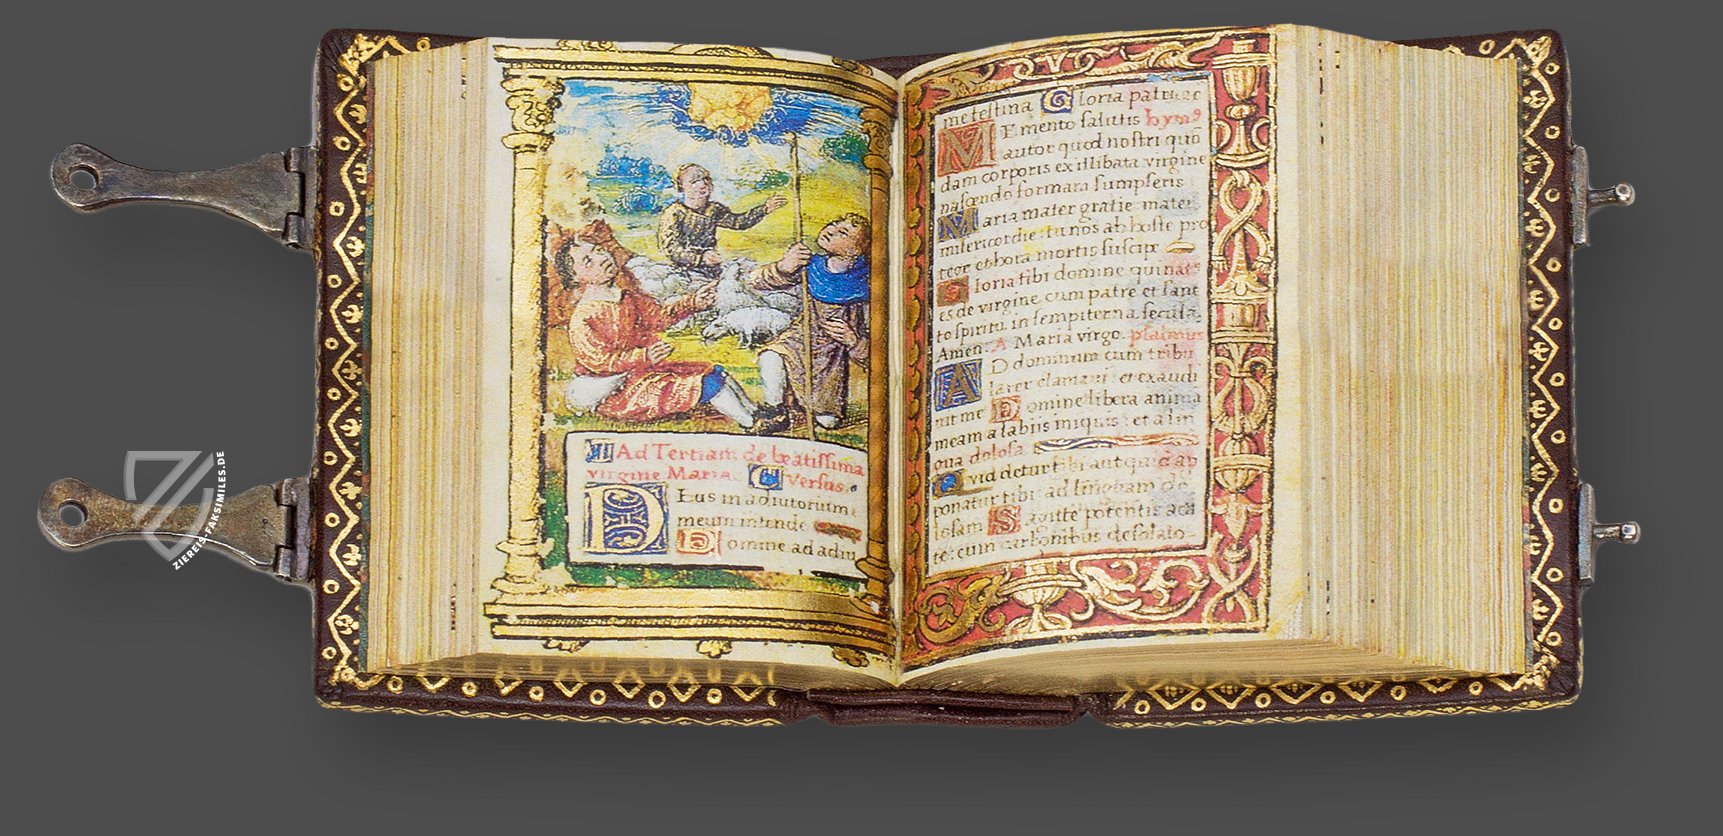 Ad Tertiam de beatissima
virgine Maria. Versus.
DEus in adiutorium
meum intende
Domine ad adiu
me festina Gloria patri
MEmento salutis hymᵒ
autor quod nostri quō
dam corporis ex illibata virgine
nascendo formam sumpseris
Maria mater gratie mater
misericordie: tu nos ab hoste pro
tege et hora mortis suscipe
Gloria tibi domine qui nat9
es de virgine cum patre et sanc
to spiritu in sempiterna secula.
Amen. A Maria virgo. psalmus
AD dominum cum tribu
larer clamavi: et exaudi
vit me Domine libera anima
meam a labiis iniquis: et a lin
gua dolosa.
Quid detur tibi aut quid ap
ponatur tibi: ad linguam do
losam Sagitte potentis acu
te: cum carbonibus desolato
ZIEREIS-FAKSIMILES.DE